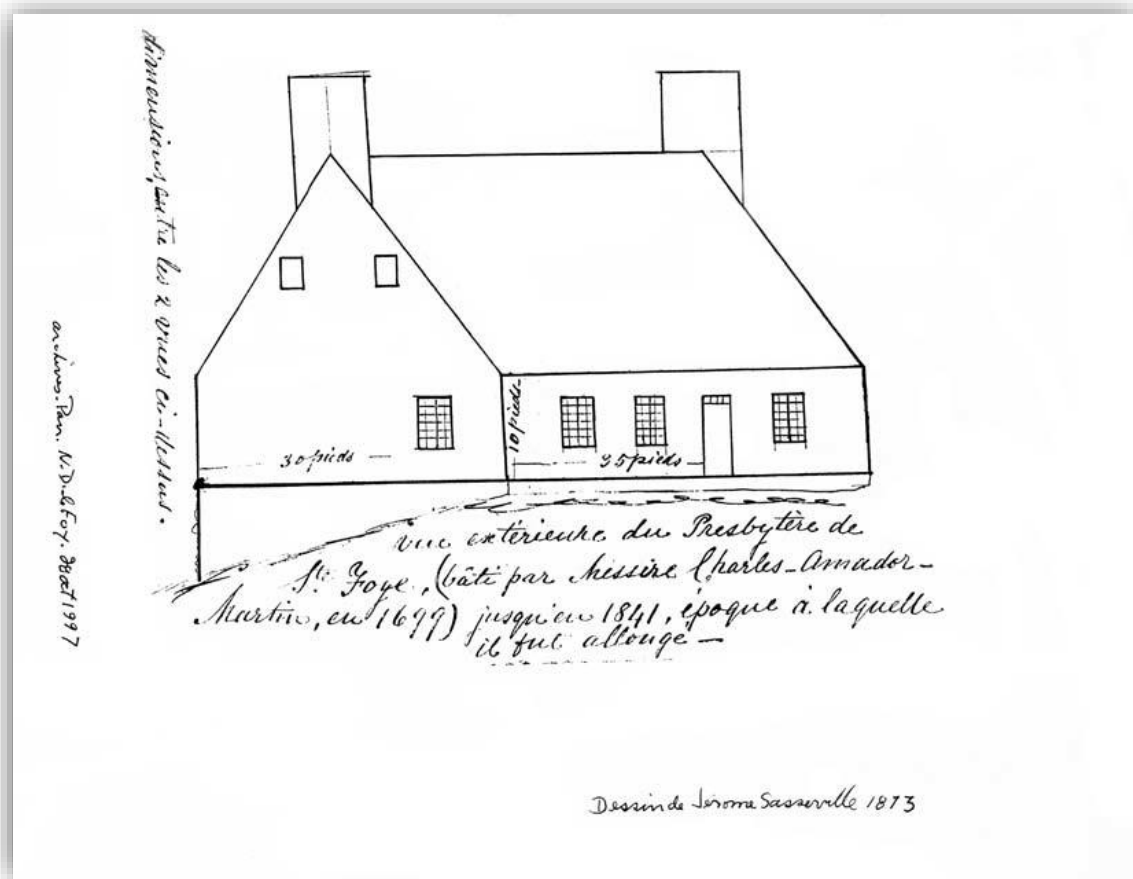 dimensions, entre les 2 vues ci-dessus.
archives. Par. N.D. de Foy. 1997
30 pieds
10 pieds
35 pieds
vue extérieure du Presbytère de
St. Foye, (bâti par Messire Charles-Amador-
Martin, en 1699) jusqu'en 1841, époque à laquelle
il fut allongé —
Dessin de Jérome Sasseville 1873